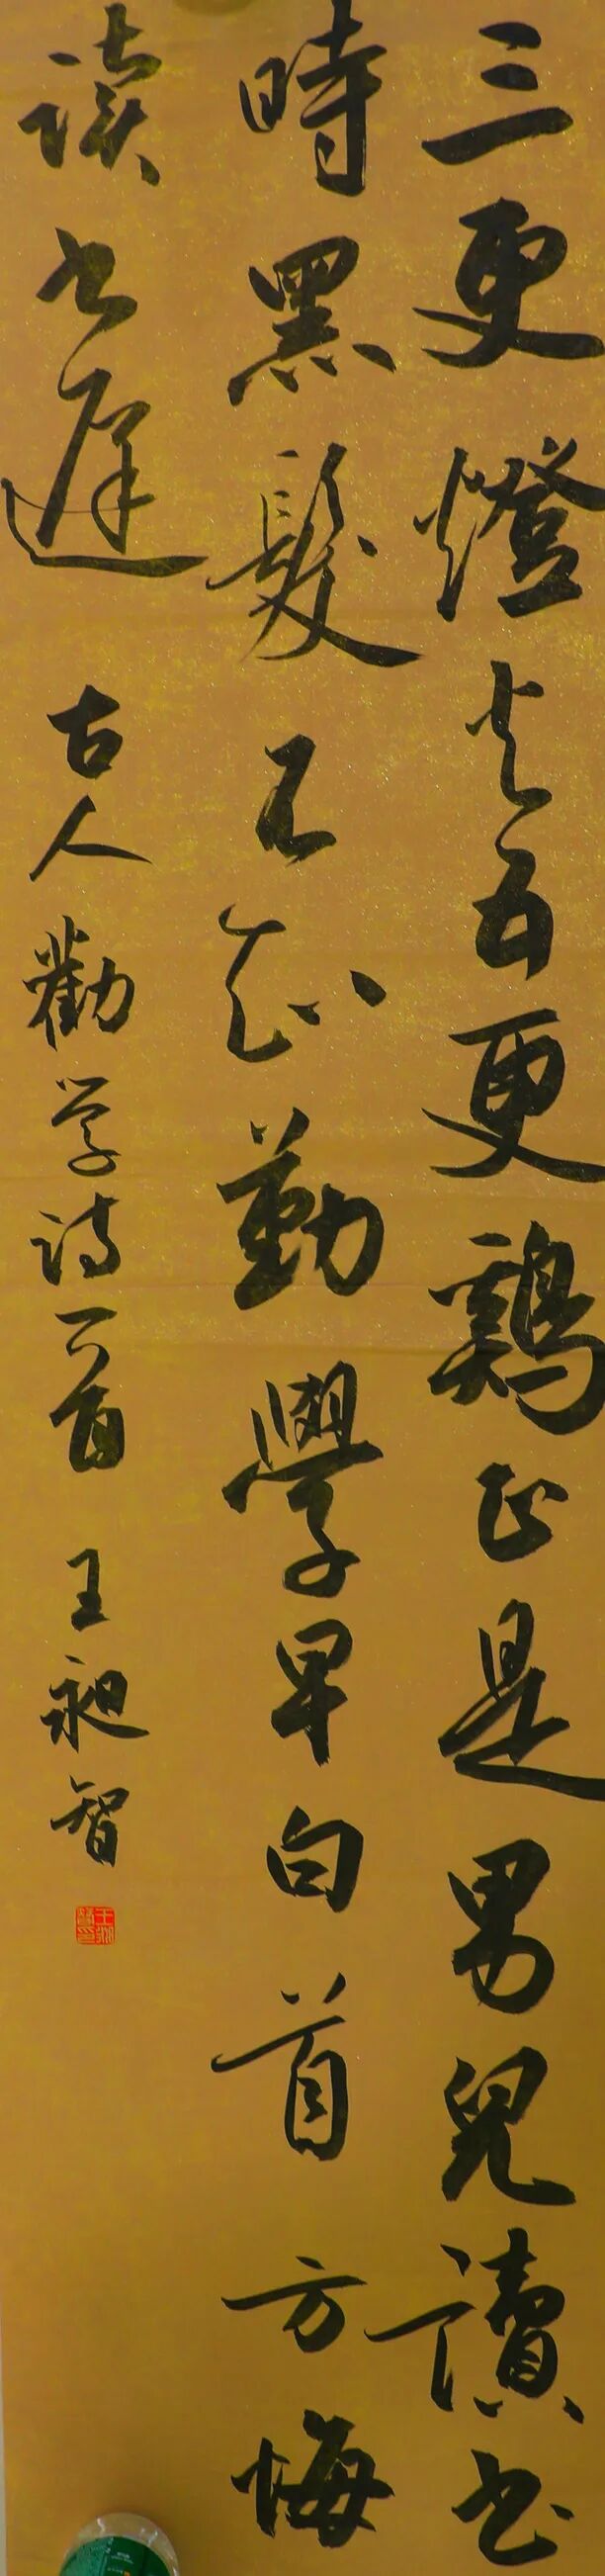 三更燈火五更鷄正是男兒讀书
時黑髮不知勤學早白首方悔
读书遲 古人勸学诗一首 王昶智